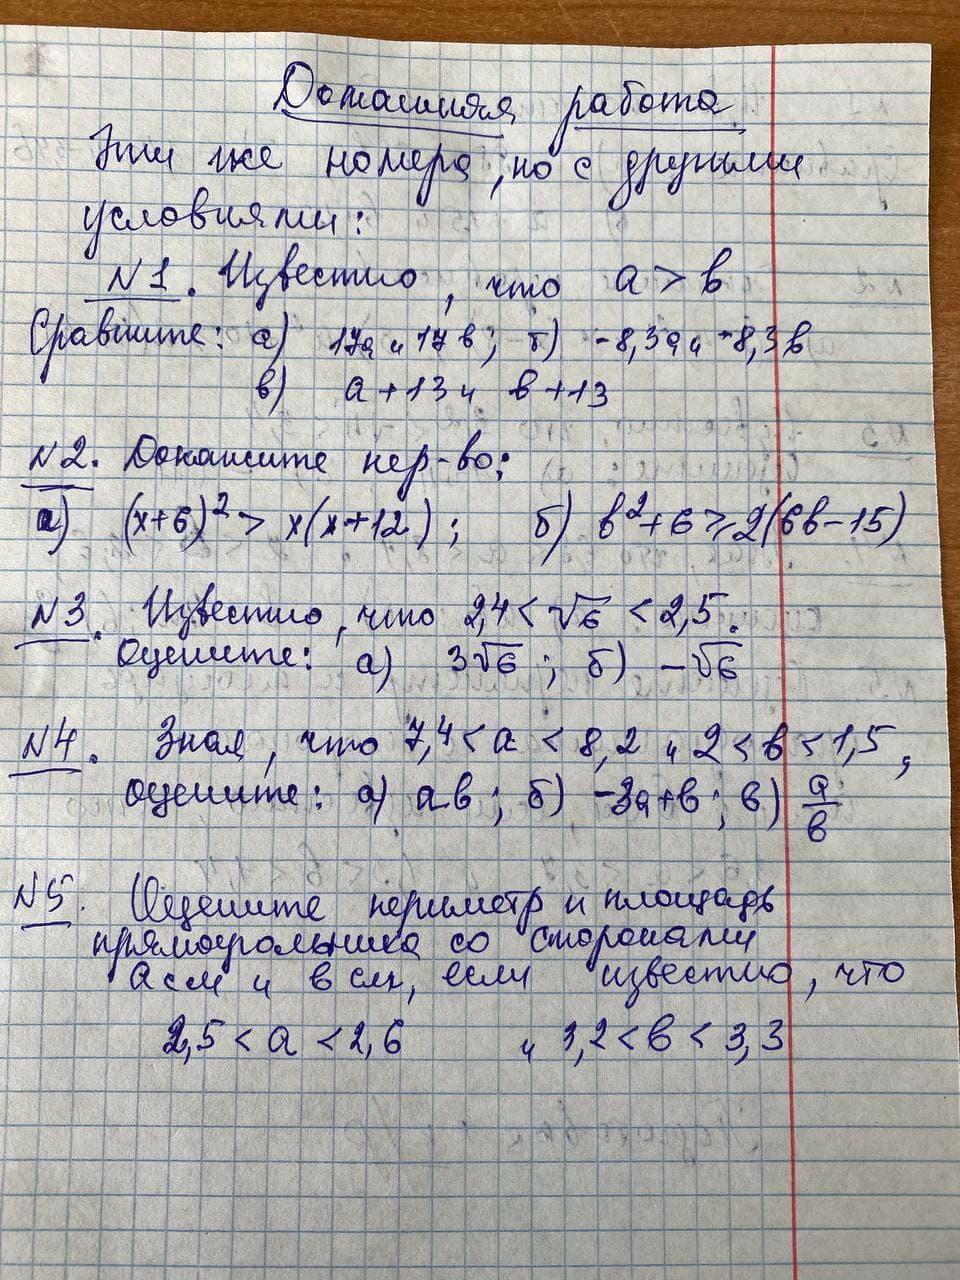 Домашняя работа.
Эти же номера, но с другими
условиями:
N1. Известно, что a > b
Сравните: а) 17a и 17b; б) -8,3a и -8,3b
в) a+13 и b+13
N2. Докажите нер-во:
а) (x+6)² > x(x+12); б) b²+6 ≥ 2(6b-15)
N3. Известно, что 2,4 < √6 < 2,5.
Оцените: а) 3√6; б) -√6
N4. Зная, что 7,4 < a < 8,2 и 2 < b < 1,5,
оцените: а) ab; б) -3a+b; в) a/b
N5. Оцените периметр и площадь
прямоугольника со сторонами
a см и b см, если известно, что
2,5 < a < 2,6 и 3,2 < b < 3,3